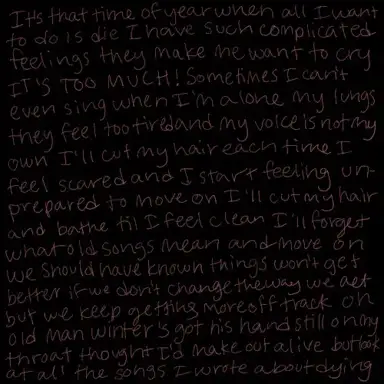 It's that time of year when all I want
to do is die I have such complicated
feelings they make me want to cry
IT'S TOO MUCH! Sometimes I can't
even sing when I'm alone my lungs
they feel too tired and my voice is not my
own I'll cut my hair each time I
feel scared and I start feeling un-
prepared to move on I'll cut my hair
and bathe til I feel clean I'll forget
what old songs mean and move on
we should have known things won't get
better if we don't change the way we act
but we keep getting more off track oh
old man winter's got his hand still on my
throat thought I'd make out alive but look
at all the songs I wrote about dying